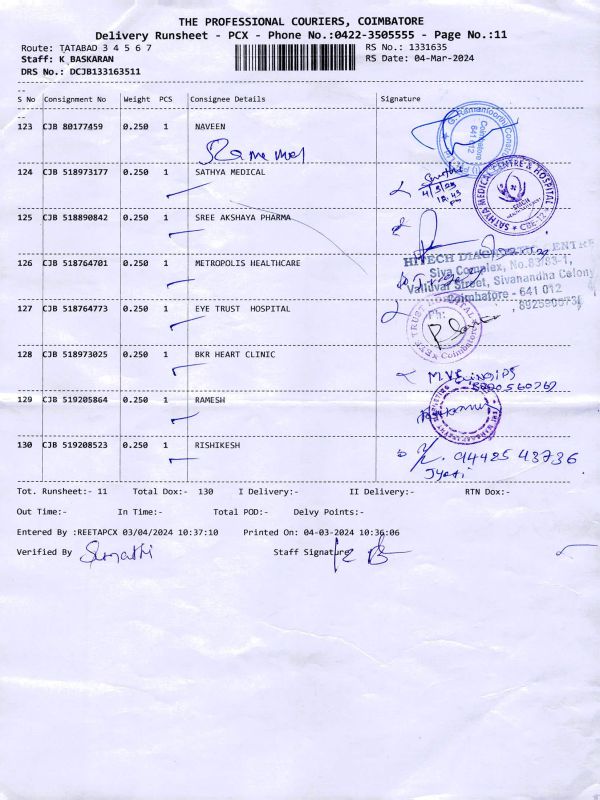 THE PROFESSIONAL COURIERS, COIMBATORE
Delivery Runsheet - PCX - Phone No.:0422-3505555 - Page No.:11
Route: TATABAD 3 4 5 6 7 RS No.: 1331635
Staff: K BASKARAN RS Date: 04-Mar-2024
DRS No.: DCJB133163511
S No Consignment No Weight PCS Consignee Details Signature
123 CJB 80177459 0.250 1 NAVEEN
Coimbatore
641 012
124 CJB 518973177 0.250 1 SATHYA MEDICAL
SATHYA MEDICAL CENTRE & HOSPITAL
CBE-12
125 CJB 518890842 0.250 1 SREE AKSHAYA PHARMA
126 CJB 518764701 0.250 1 METROPOLIS HEALTHCARE
HITECH DIAGNOSTIC CENTRE
Siva Complex, No.83/83-1,
Valluvar Street, Sivanandha Colony
Coimbatore - 641 012
Ph:
127 CJB 518764773 0.250 1 EYE TRUST HOSPITAL
EYE TRUST HOSPITAL
Coimbatore
128 CJB 518973025 0.250 1 BKR HEART CLINIC
129 CJB 519205864 0.250 1 RAMESH
130 CJB 519208523 0.250 1 RISHIKESH
94425 43736
Jyoti
Tot. Runsheet:- 11 Total Dox:- 130 I Delivery:- II Delivery:- RTN Dox:-
Out Time:- In Time:- Total POD:- Delvy Points:-
Entered By :REETAPCX 03/04/2024 10:37:10 Printed On: 04-03-2024 10:36:06
Verified By Sumathi Staff Signature